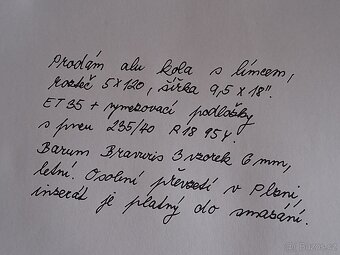 Prodám alu kola s límcem,
rozteč 5x120, šířka 9,5 x 18".
ET 35 + vymezovací podložky
s pneu 235/40 R18 95Y.
Barum Bravuris 3 vzorek 6 mm,
letní. Osobní převzetí v Plzni,
inzerát je platný do smazání.
Bazoš.cz